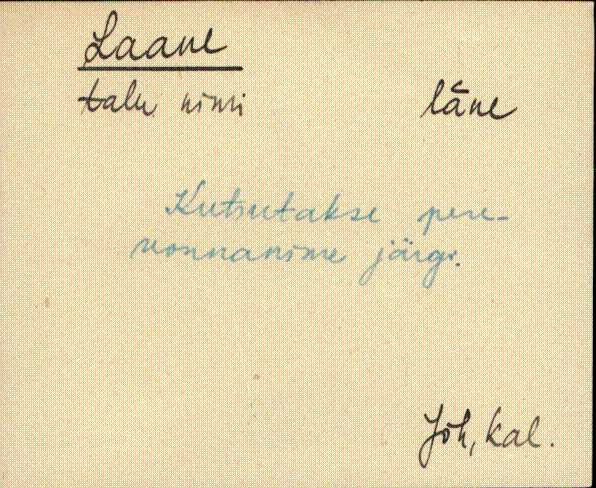 Laane
talu nimi läne
Kutsutakse pere-
konnanime järgi.
Jõh, kal.